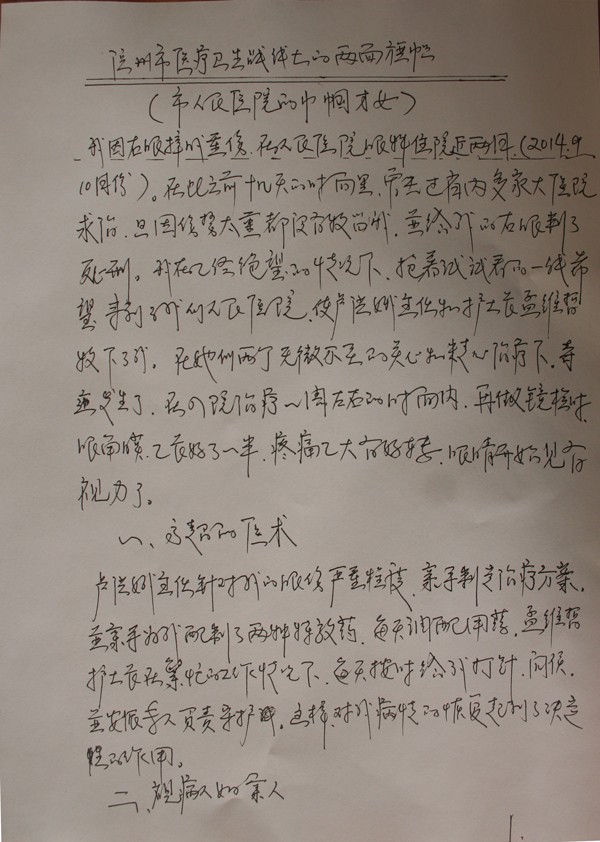 州市医疗卫生战线上的两面旗帜
(市人民医院的巾帼才女)
我因右眼摔成重伤,在人民医院眼科住院近两周,(2014.9
10月份)。在此之前十几天的时间里,常去过省内多家大医院
求治,且因伤势太重都没有收留我,并给我的右眼判了
死刑。我在已经绝望的情况下,抱着试试看的一线希
望来到了我们人民医院,使卢洁娥主任和护士长孟维哲
收下了我。在她们两个无微不至的关心和精心治疗下,奇
迹发生了,在入院治疗一周左右的时间内,再做镜检时,
眼角膜已长好了一半,疼痛已大有好转,眼睛开始见有
视力了。
一、高超的医术
卢洁娥主任针对我的眼伤严重程度,亲手制定治疗方案,
并亲手为我配制了两种特效药,每天调配用药,孟维哲
护士长在繁忙的工作情况下,每天按时给我打针,问候,
并安派专人负责守护,这样,对我病情的恢复起到了决定
性的作用。
二、视病人如亲人